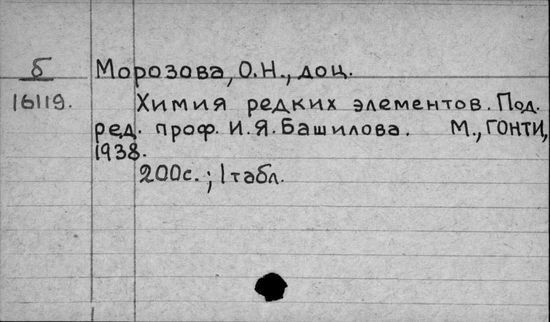 б
16119.
Морозова, О.Н., доц.
Химия редких элементов. Под.
ред. проф. И.Я.Башилова. М., ГОНТИ,
1938.
200с.; 1 табл.